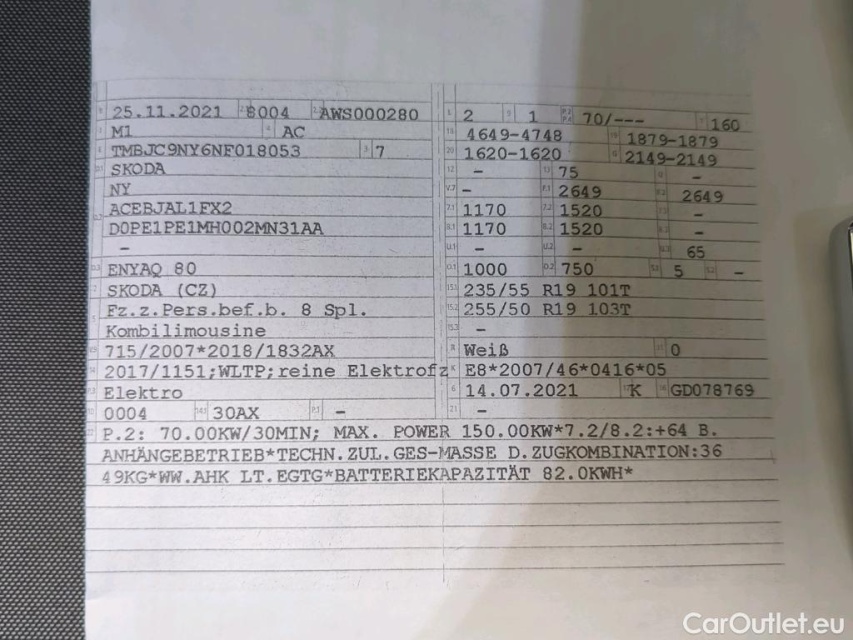 25.11.2021 8004 AWS000280
M1 AC
TMBJC9NY6NF018053 7
SKODA
NY
ACEBJAL1FX2
D0PE1PE1MH002MN31AA
–
ENYAQ 80
SKODA (CZ)
Fz.z.Pers.bef.b. 8 Spl.
Kombilimousine
715/2007*2018/1832AX
2017/1151;WLTP;reine Elektrofz
Elektro
0004 30AX –
2 1 70/--- 160
4649-4748 1879-1879
1620-1620 2149-2149
– 75 –
– 2649 2649
1170 1520 –
1170 1520 –
– – 65
1000 750 5 –
235/55 R19 101T
255/50 R19 103T
–
Weiß 0
E8*2007/46*0416*05
14.07.2021 K GD078769
–
P.2: 70.00KW/30MIN; MAX. POWER 150.00KW*7.2/8.2:+64 B.
ANHÄNGEBETRIEB*TECHN.ZUL.GES-MASSE D.ZUGKOMBINATION:36
49KG*WW.AHK LT.EGTG*BATTERIEKAPAZITÄT 82.0KWH*
CarOutlet.eu